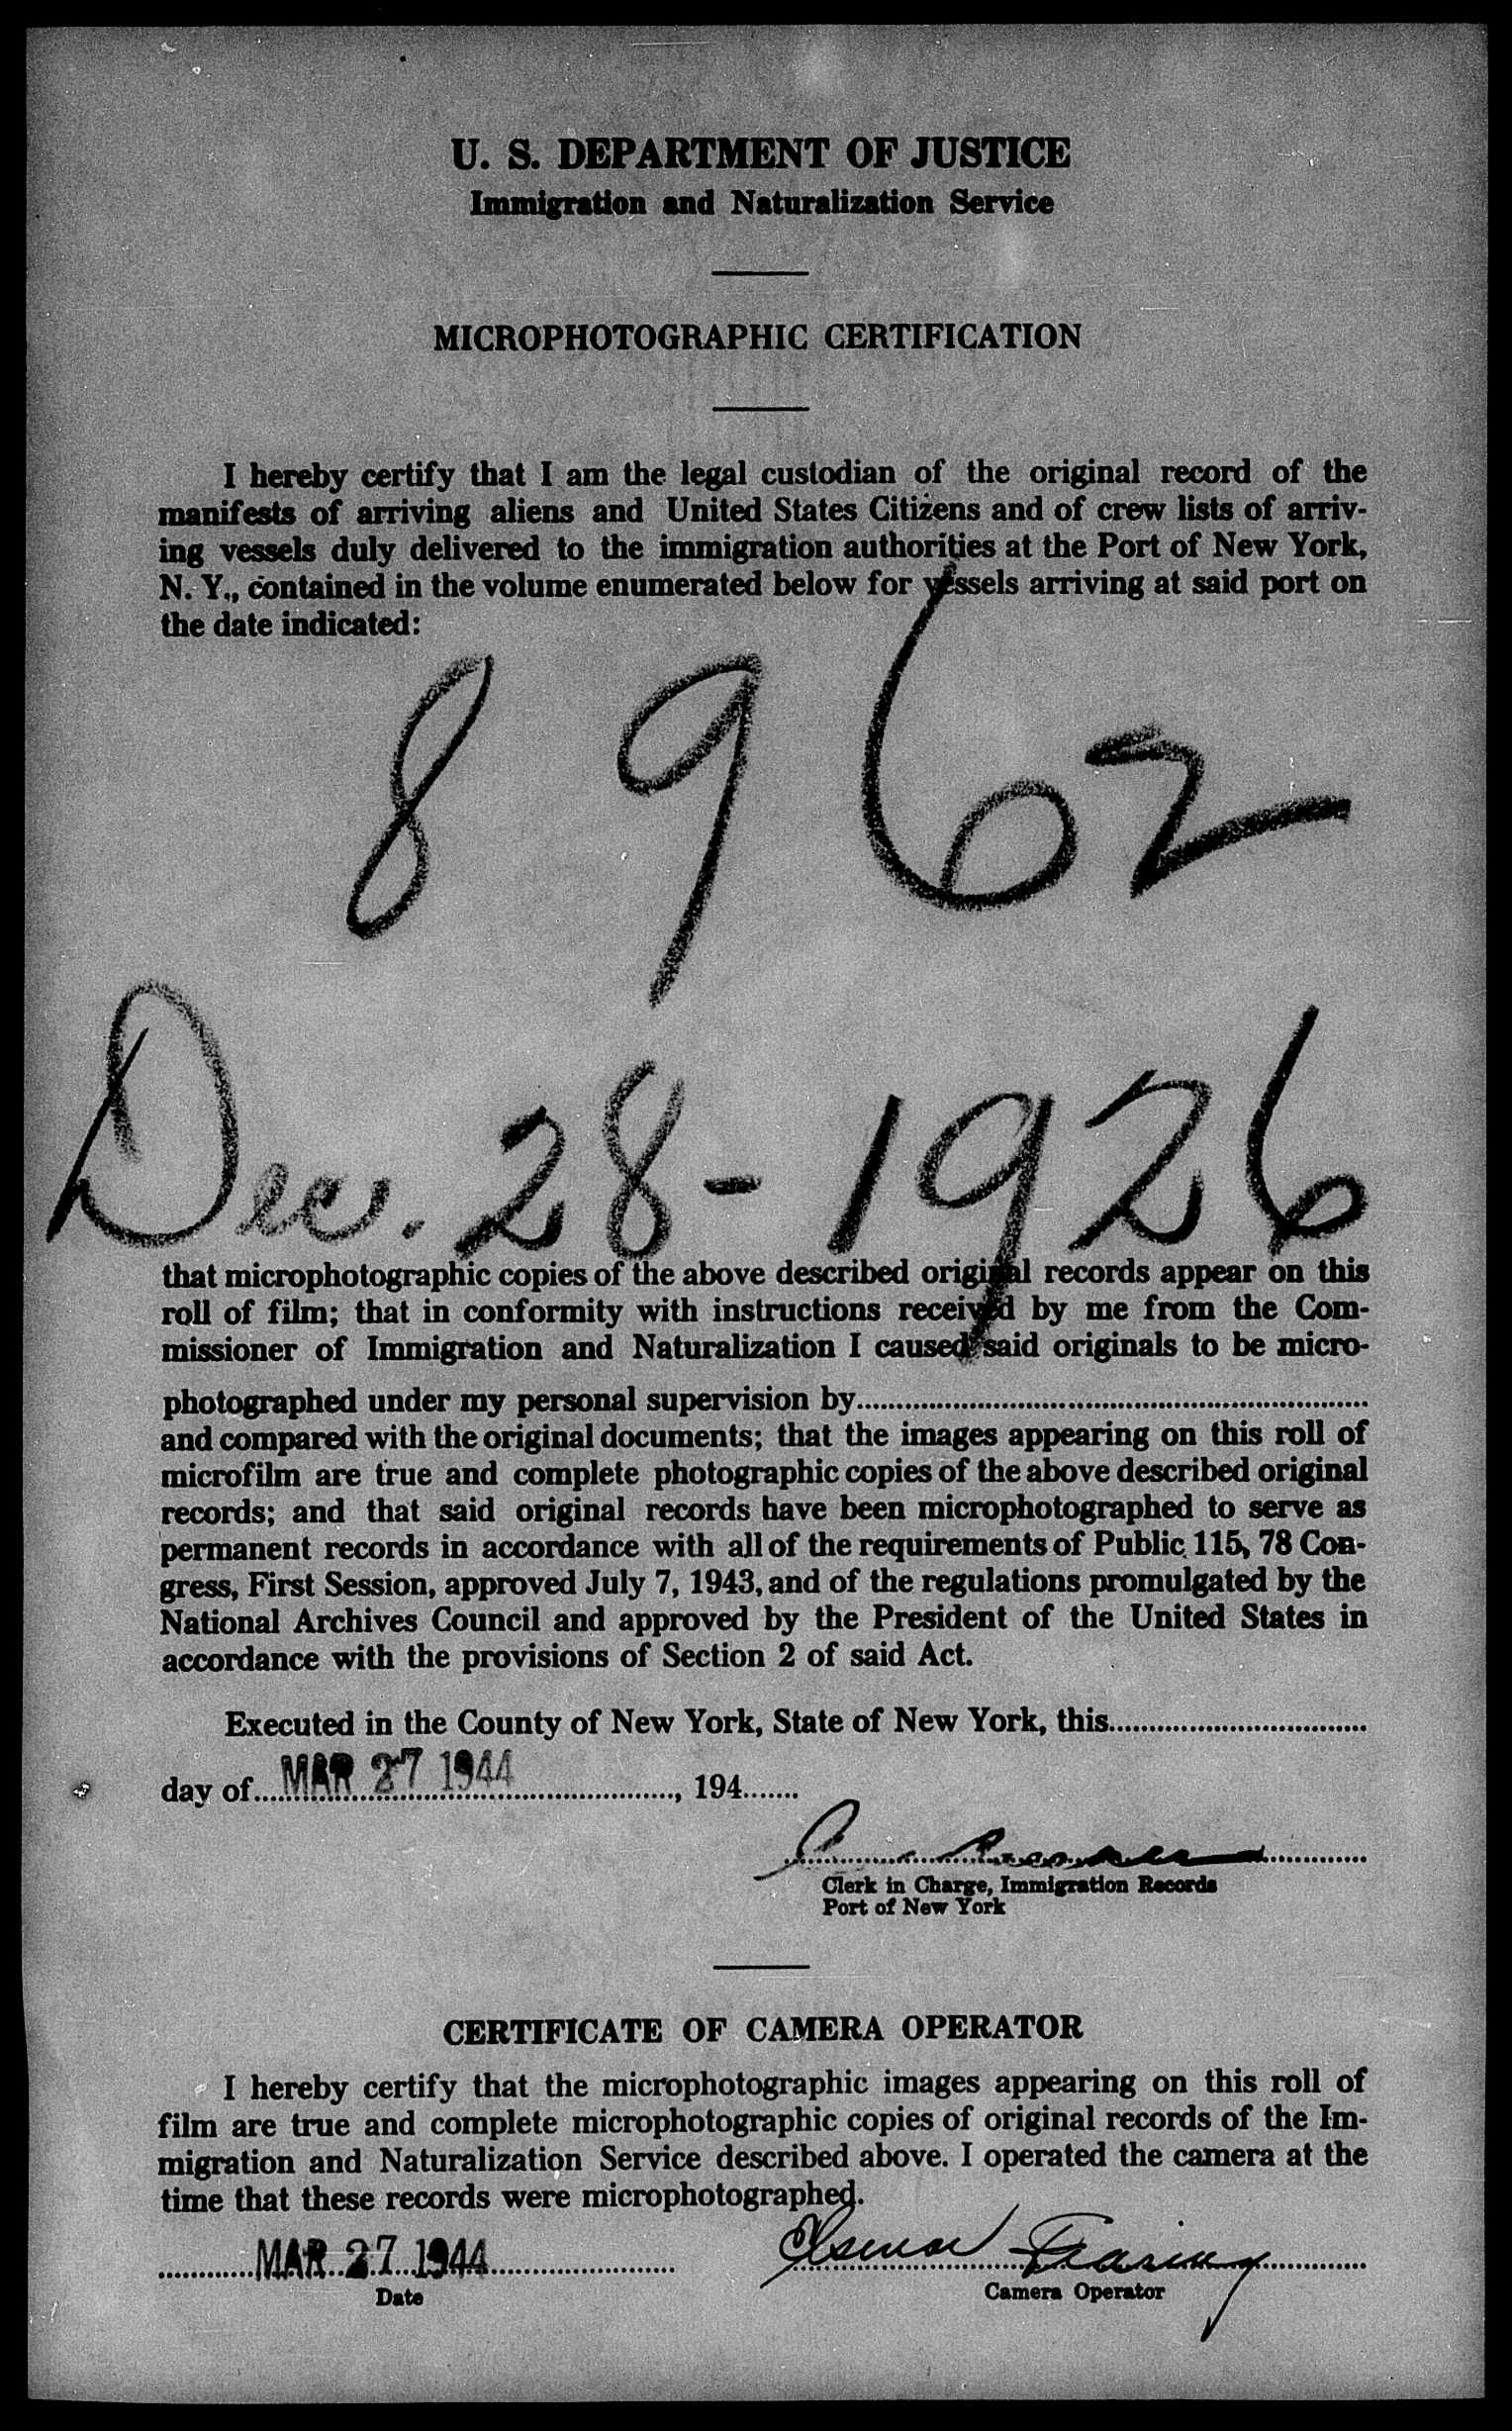 U. S. DEPARTMENT OF JUSTICE
Immigration and Naturalization Service
MICROPHOTOGRAPHIC CERTIFICATION
I hereby certify that I am the legal custodian of the original record of the
manifests of arriving aliens and United States Citizens and of crew lists of arriv-
ing vessels duly delivered to the immigration authorities at the Port of New York,
N. Y., contained in the volume enumerated below for vessels arriving at said port on
the date indicated:
8962
Dec. 28-1926
that microphotographic copies of the above described original records appear on this
roll of film; that in conformity with instructions received by me from the Com-
missioner of Immigration and Naturalization I caused said originals to be micro-
photographed under my personal supervision by
and compared with the original documents; that the images appearing on this roll of
microfilm are true and complete photographic copies of the above described original
records; and that said original records have been microphotographed to serve as
permanent records in accordance with all of the requirements of Public 115, 78 Con-
gress, First Session, approved July 7, 1943, and of the regulations promulgated by the
National Archives Council and approved by the President of the United States in
accordance with the provisions of Section 2 of said Act.
Executed in the County of New York, State of New York, this
day of MAR 27 1944, 194
Clerk in Charge, Immigration Records
Port of New York
CERTIFICATE OF CAMERA OPERATOR
I hereby certify that the microphotographic images appearing on this roll of
film are true and complete microphotographic copies of original records of the Im-
migration and Naturalization Service described above. I operated the camera at the
time that these records were microphotographed.
MAR 27 1944
Date
Camera Operator